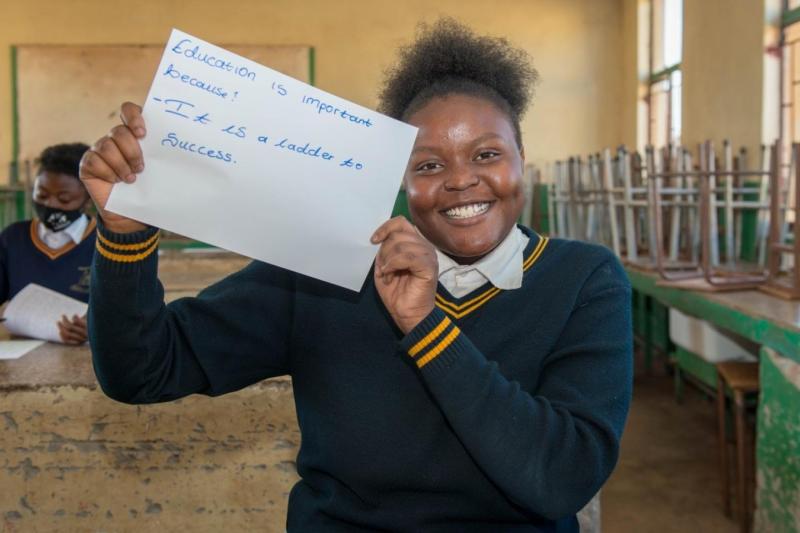 Education is important
because!
- It is a ladder to
Success.